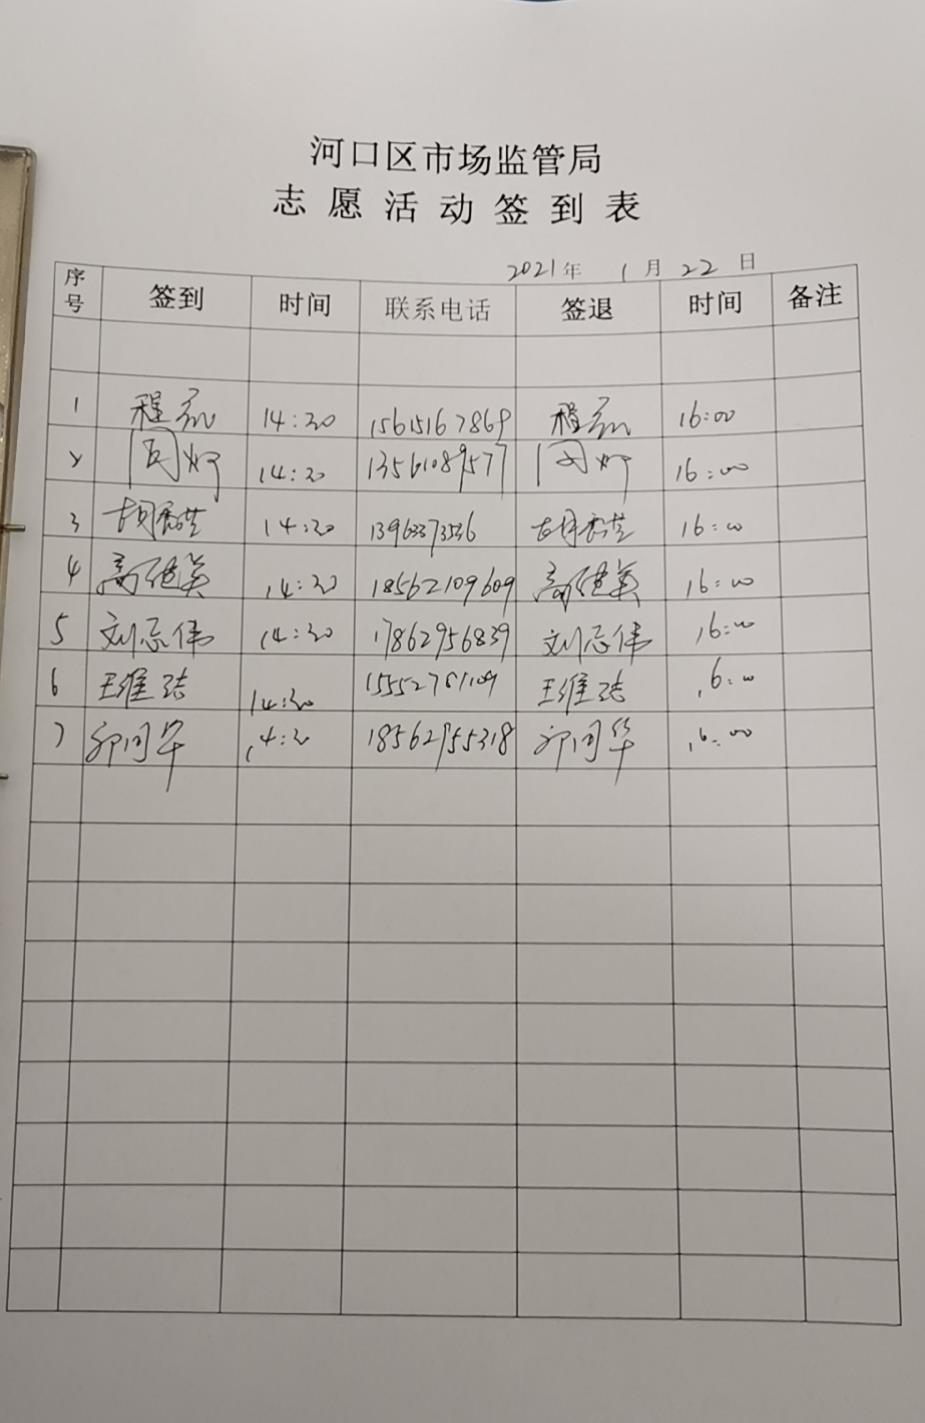 河口区市场监管局
志愿活动签到表
2021年 1月22日
序号 签到 时间 联系电话 签退 时间 备注
1 程磊 14:30 15615167869 程磊 16:00
2 14:30 13561089577 16:00
3 14:30 13963373536 16:00
4 高继英 14:30 18562109609 高继英 16:00
5 刘志伟 14:30 17862956839 刘志伟 16:00
6 王维洁 14:30 王维洁 16:00
7 14:30 18562955318 16:00